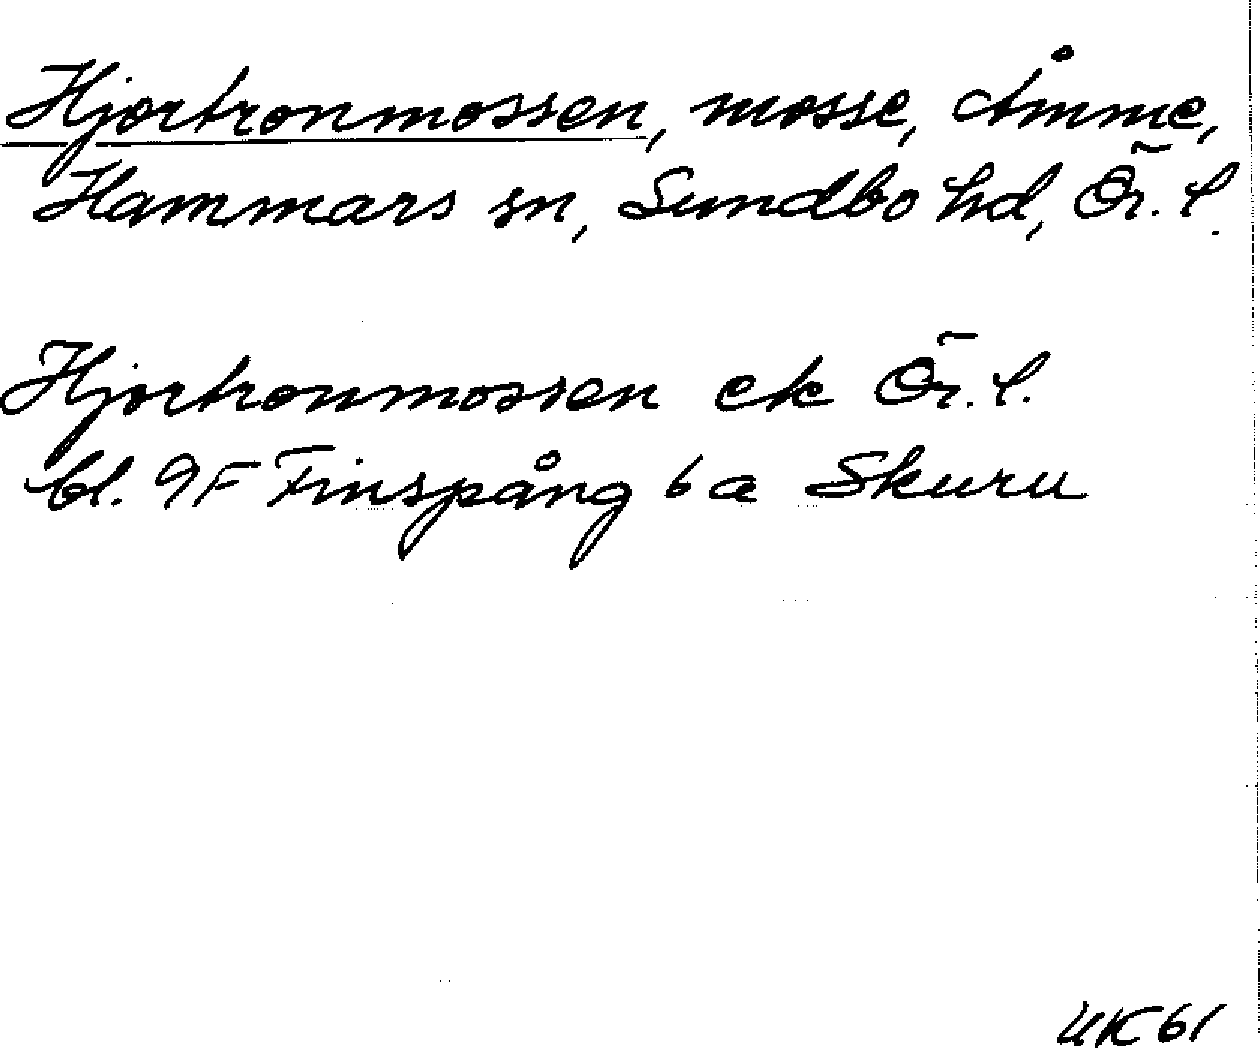 Hjortronmossen, mosse, Åmme,
Hammars sn, Sundbo hd, Ör. l.
Hjortronmossen ek Ör. l.
bl. 9F Finspång 6a Skuru
UK 61